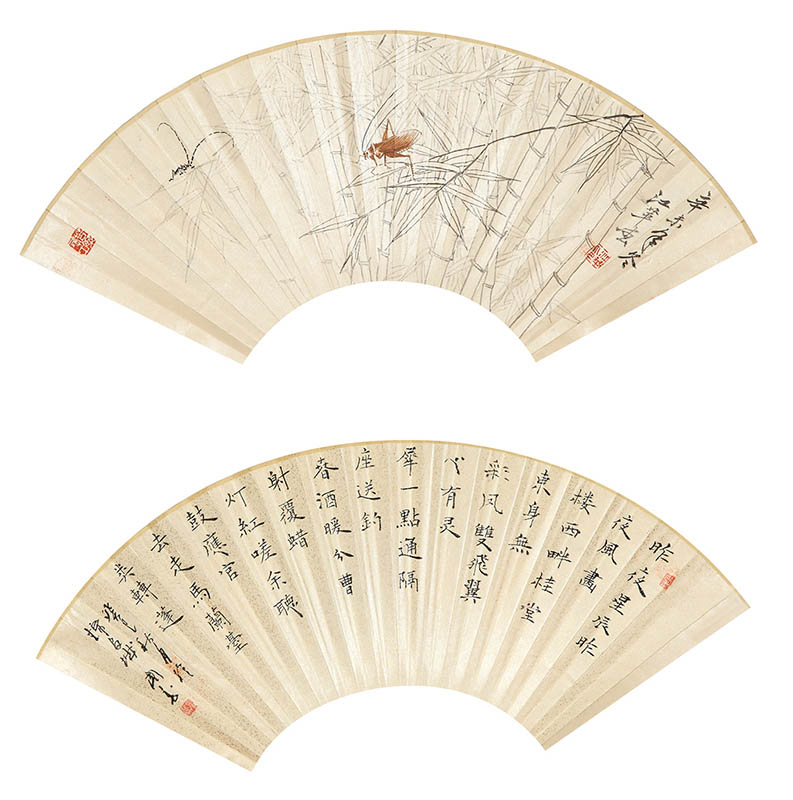 辛未年冬
江
昨夜星辰昨
夜風畫
楼西畔桂堂
東身無
彩凤雙飛翼
心有灵
犀一點通隔
座送鈎
春酒暖分曹
射覆蜡
灯紅嗟余聽
鼓應官
去走馬蘭臺
类轉蓬